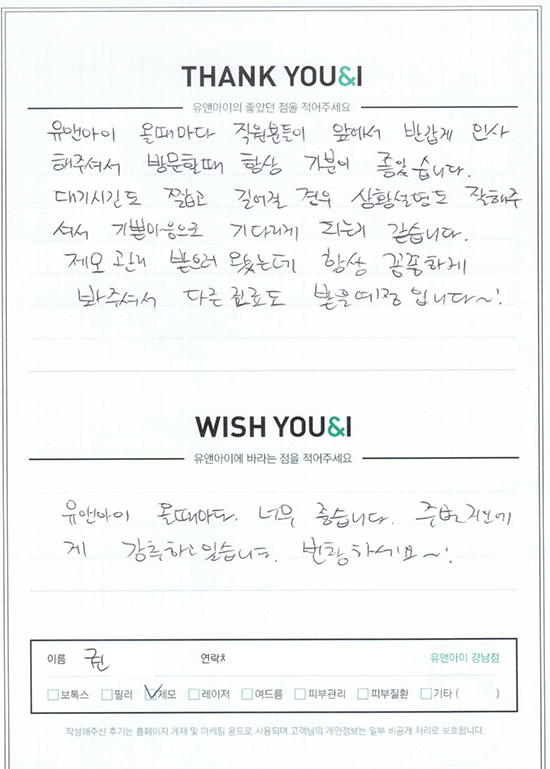 THANK YOU&I
유앤아이의 좋았던 점을 적어주세요
유앤아이 올때마다 직원분들이 앞에서 반갑게 인사
해주셔서 방문할때 항상 기분이 좋았습니다.
대기시간도 짧고 길어질 경우 상황설명도 잘해주
셔서 기쁜마음으로 기다리게 되는거 같습니다.
제모 관리 받으러 오는데 항상 꼼꼼하게
봐주셔서 다른진료도 받을예정 입니다~!
WISH YOU&I
유앤아이에 바라는 점을 적어주세요
유앤아이 올때마다. 너무 좋습니다. 주변지인에
게 강추하고있습니다. 번창하세요~!
이름 권 연락처 유앤아이 강남점
보톡스 필러 제모 레이저 여드름 피부관리 피부질환 기타 ( )
작성해주신 후기는 홈페이지 게재 및 마케팅 용도로 사용되며 고객님의 개인정보는 일부 비공개 처리로 보호됩니다.